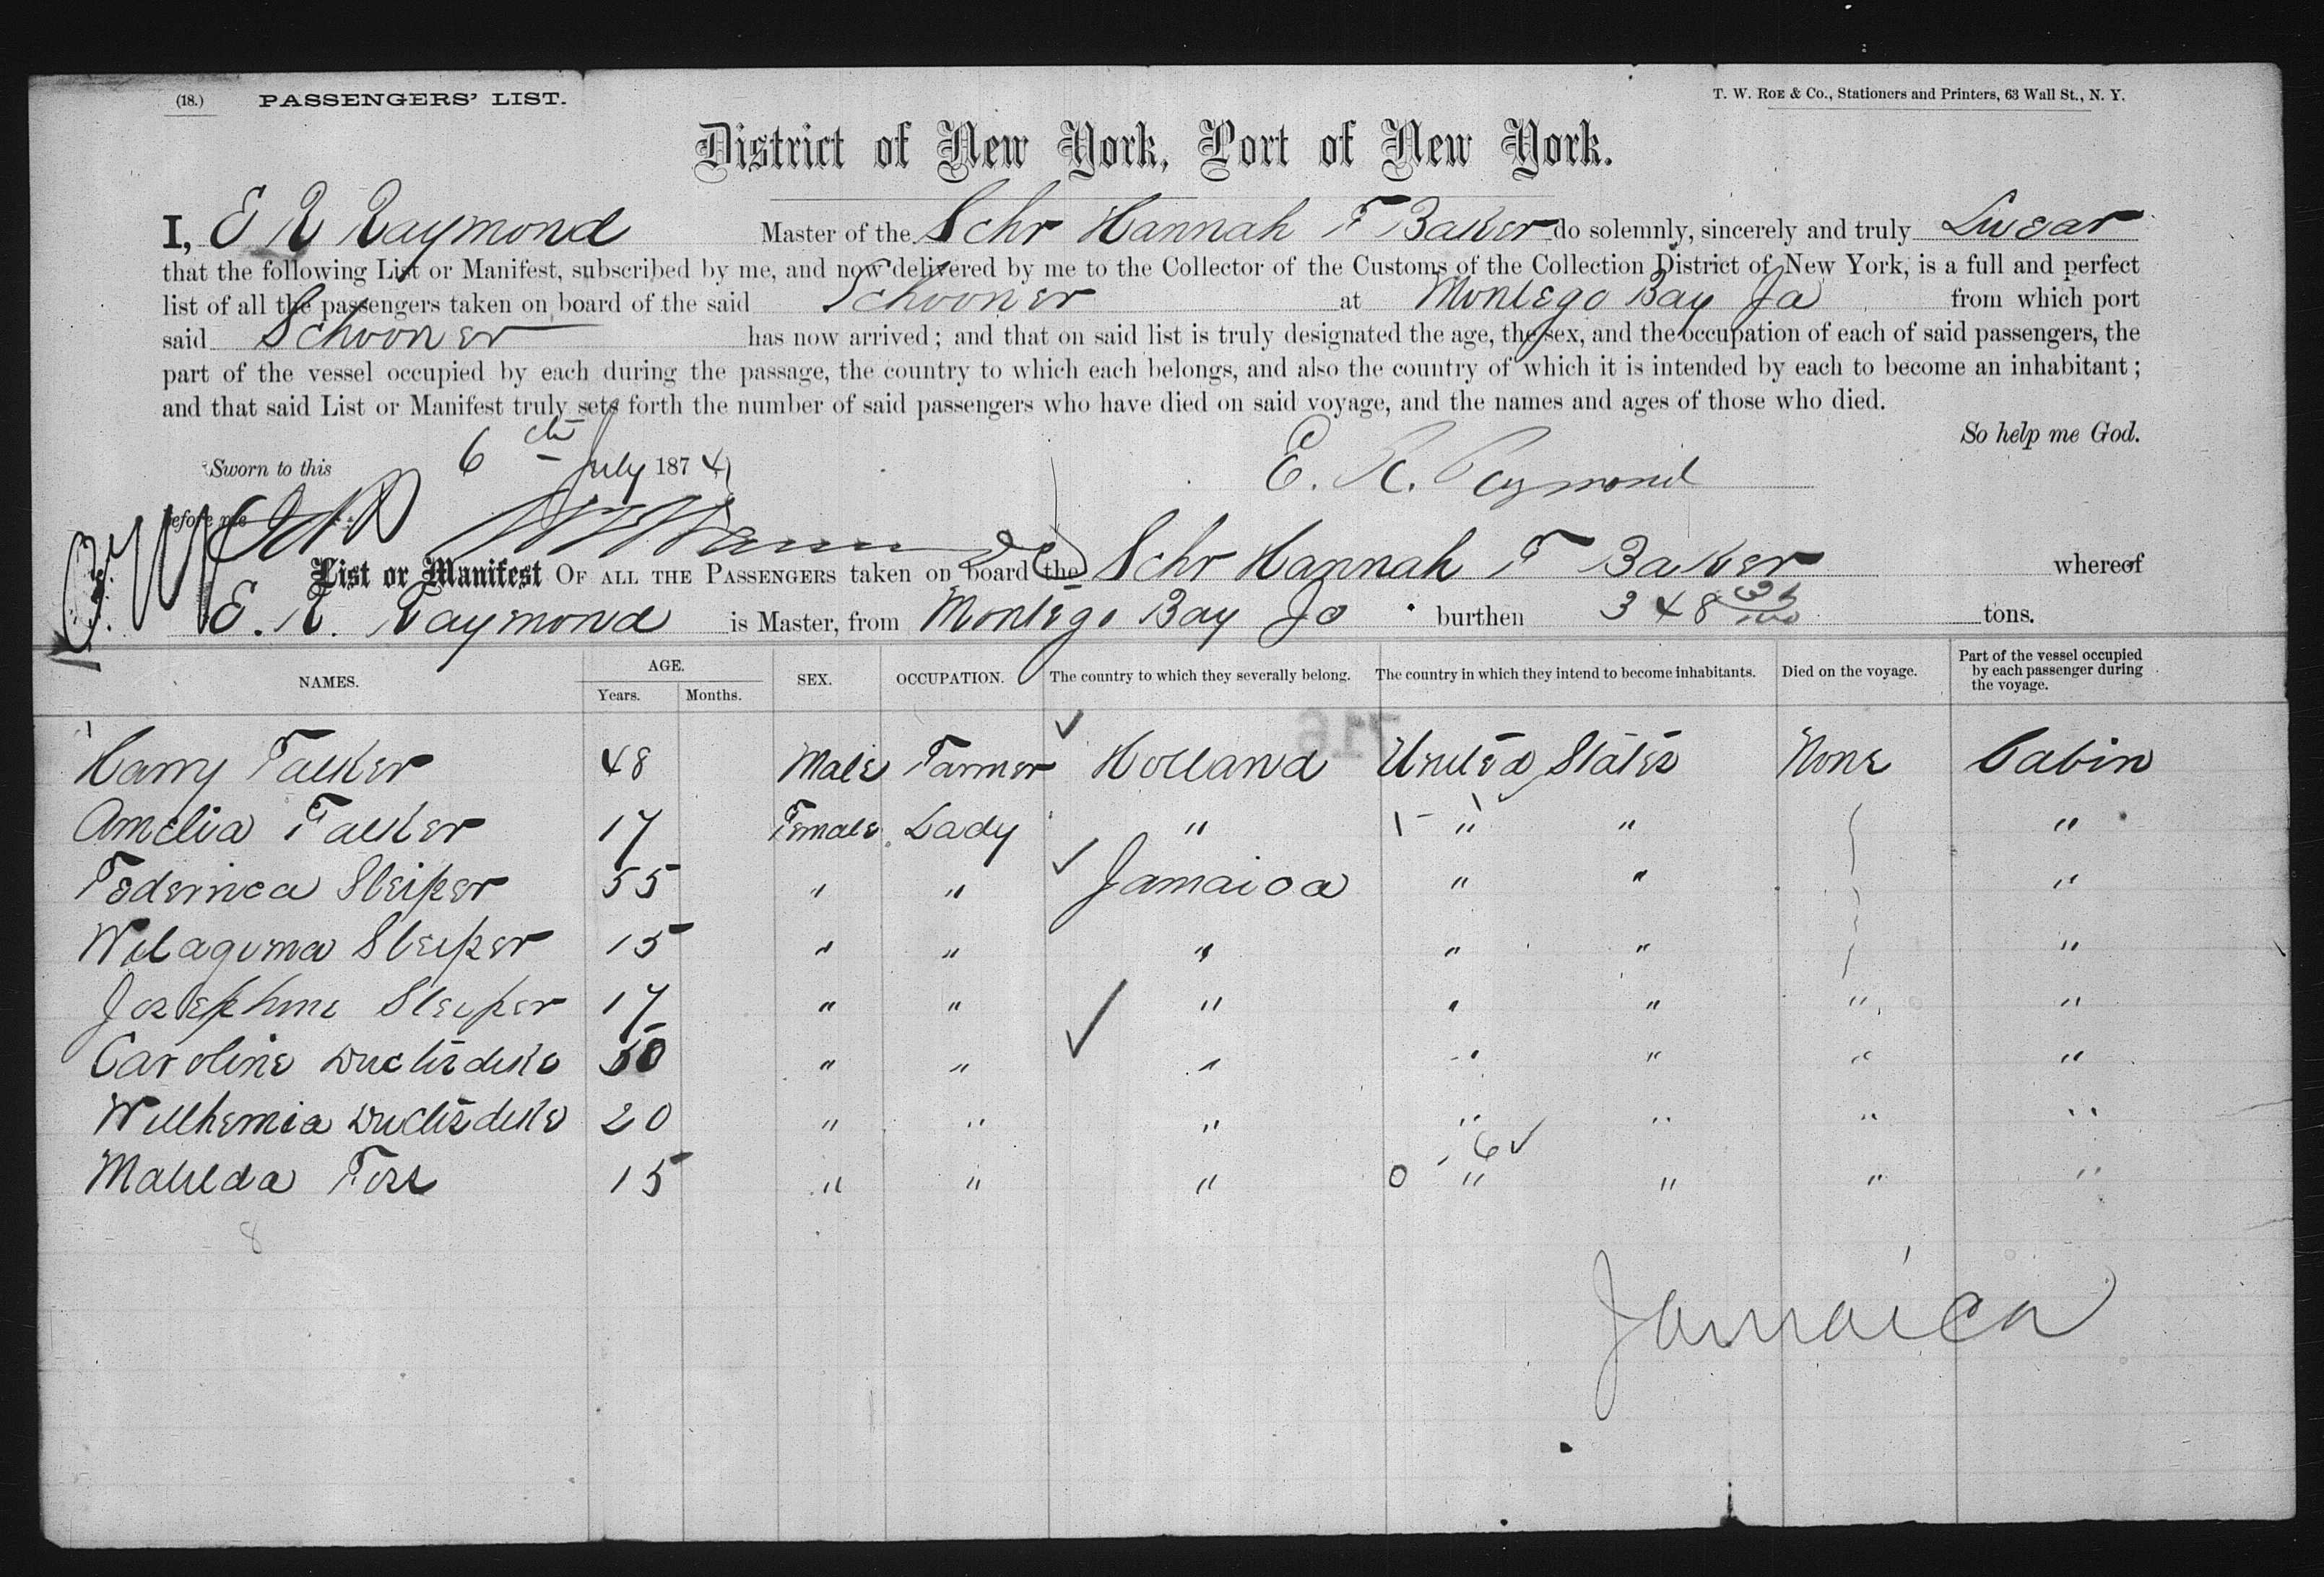 (18.) PASSENGERS' LIST. T. W. ROE & Co., Stationers and Printers, 63 Wall St., N. Y.
District of New York, Port of New York.
I, E R Raymond Master of the Schr Hannah F Baker do solemnly, sincerely and truly Swear
that the following List or Manifest, subscribed by me, and now delivered by me to the Collector of the Customs of the Collection District of New York, is a full and perfect
list of all the passengers taken on board of the said Schooner at Montego Bay Ja from which port
said Schooner has now arrived; and that on said list is truly designated the age, the sex, and the occupation of each of said passengers, the
part of the vessel occupied by each during the passage, the country to which each belongs, and also the country of which it is intended by each to become an inhabitant;
and that said List or Manifest truly sets forth the number of said passengers who have died on said voyage, and the names and ages of those who died.
So help me God.
Sworn to this 6th July 1874 E. R. Raymond
before me
List or Manifest OF ALL THE PASSENGERS taken on board the Schr Hannah F Baker whereof
E. R. Raymond is Master, from Montego Bay Ja burthen 348 35/100 tons.
NAMES. AGE. Years. Months. SEX. OCCUPATION. The country to which they severally belong. The country in which they intend to become inhabitants. Died on the voyage. Part of the vessel occupied by each passenger during the voyage.
716
Harry Falker 48 Male Farmer Holland United States None Cabin
Amelia Falker 17 Female Lady " 1 - " " "
Federnica Sleiper 55 " " Jamaica " " "
Sleiper 15 " " " " " "
Josephine Sleiper 17 " " " " " " "
Caroline 50 " " " " " " "
Willhemia 20 " " " " " " "
Matilda 15 " " " 0 6 " " " "
8
Jamaica